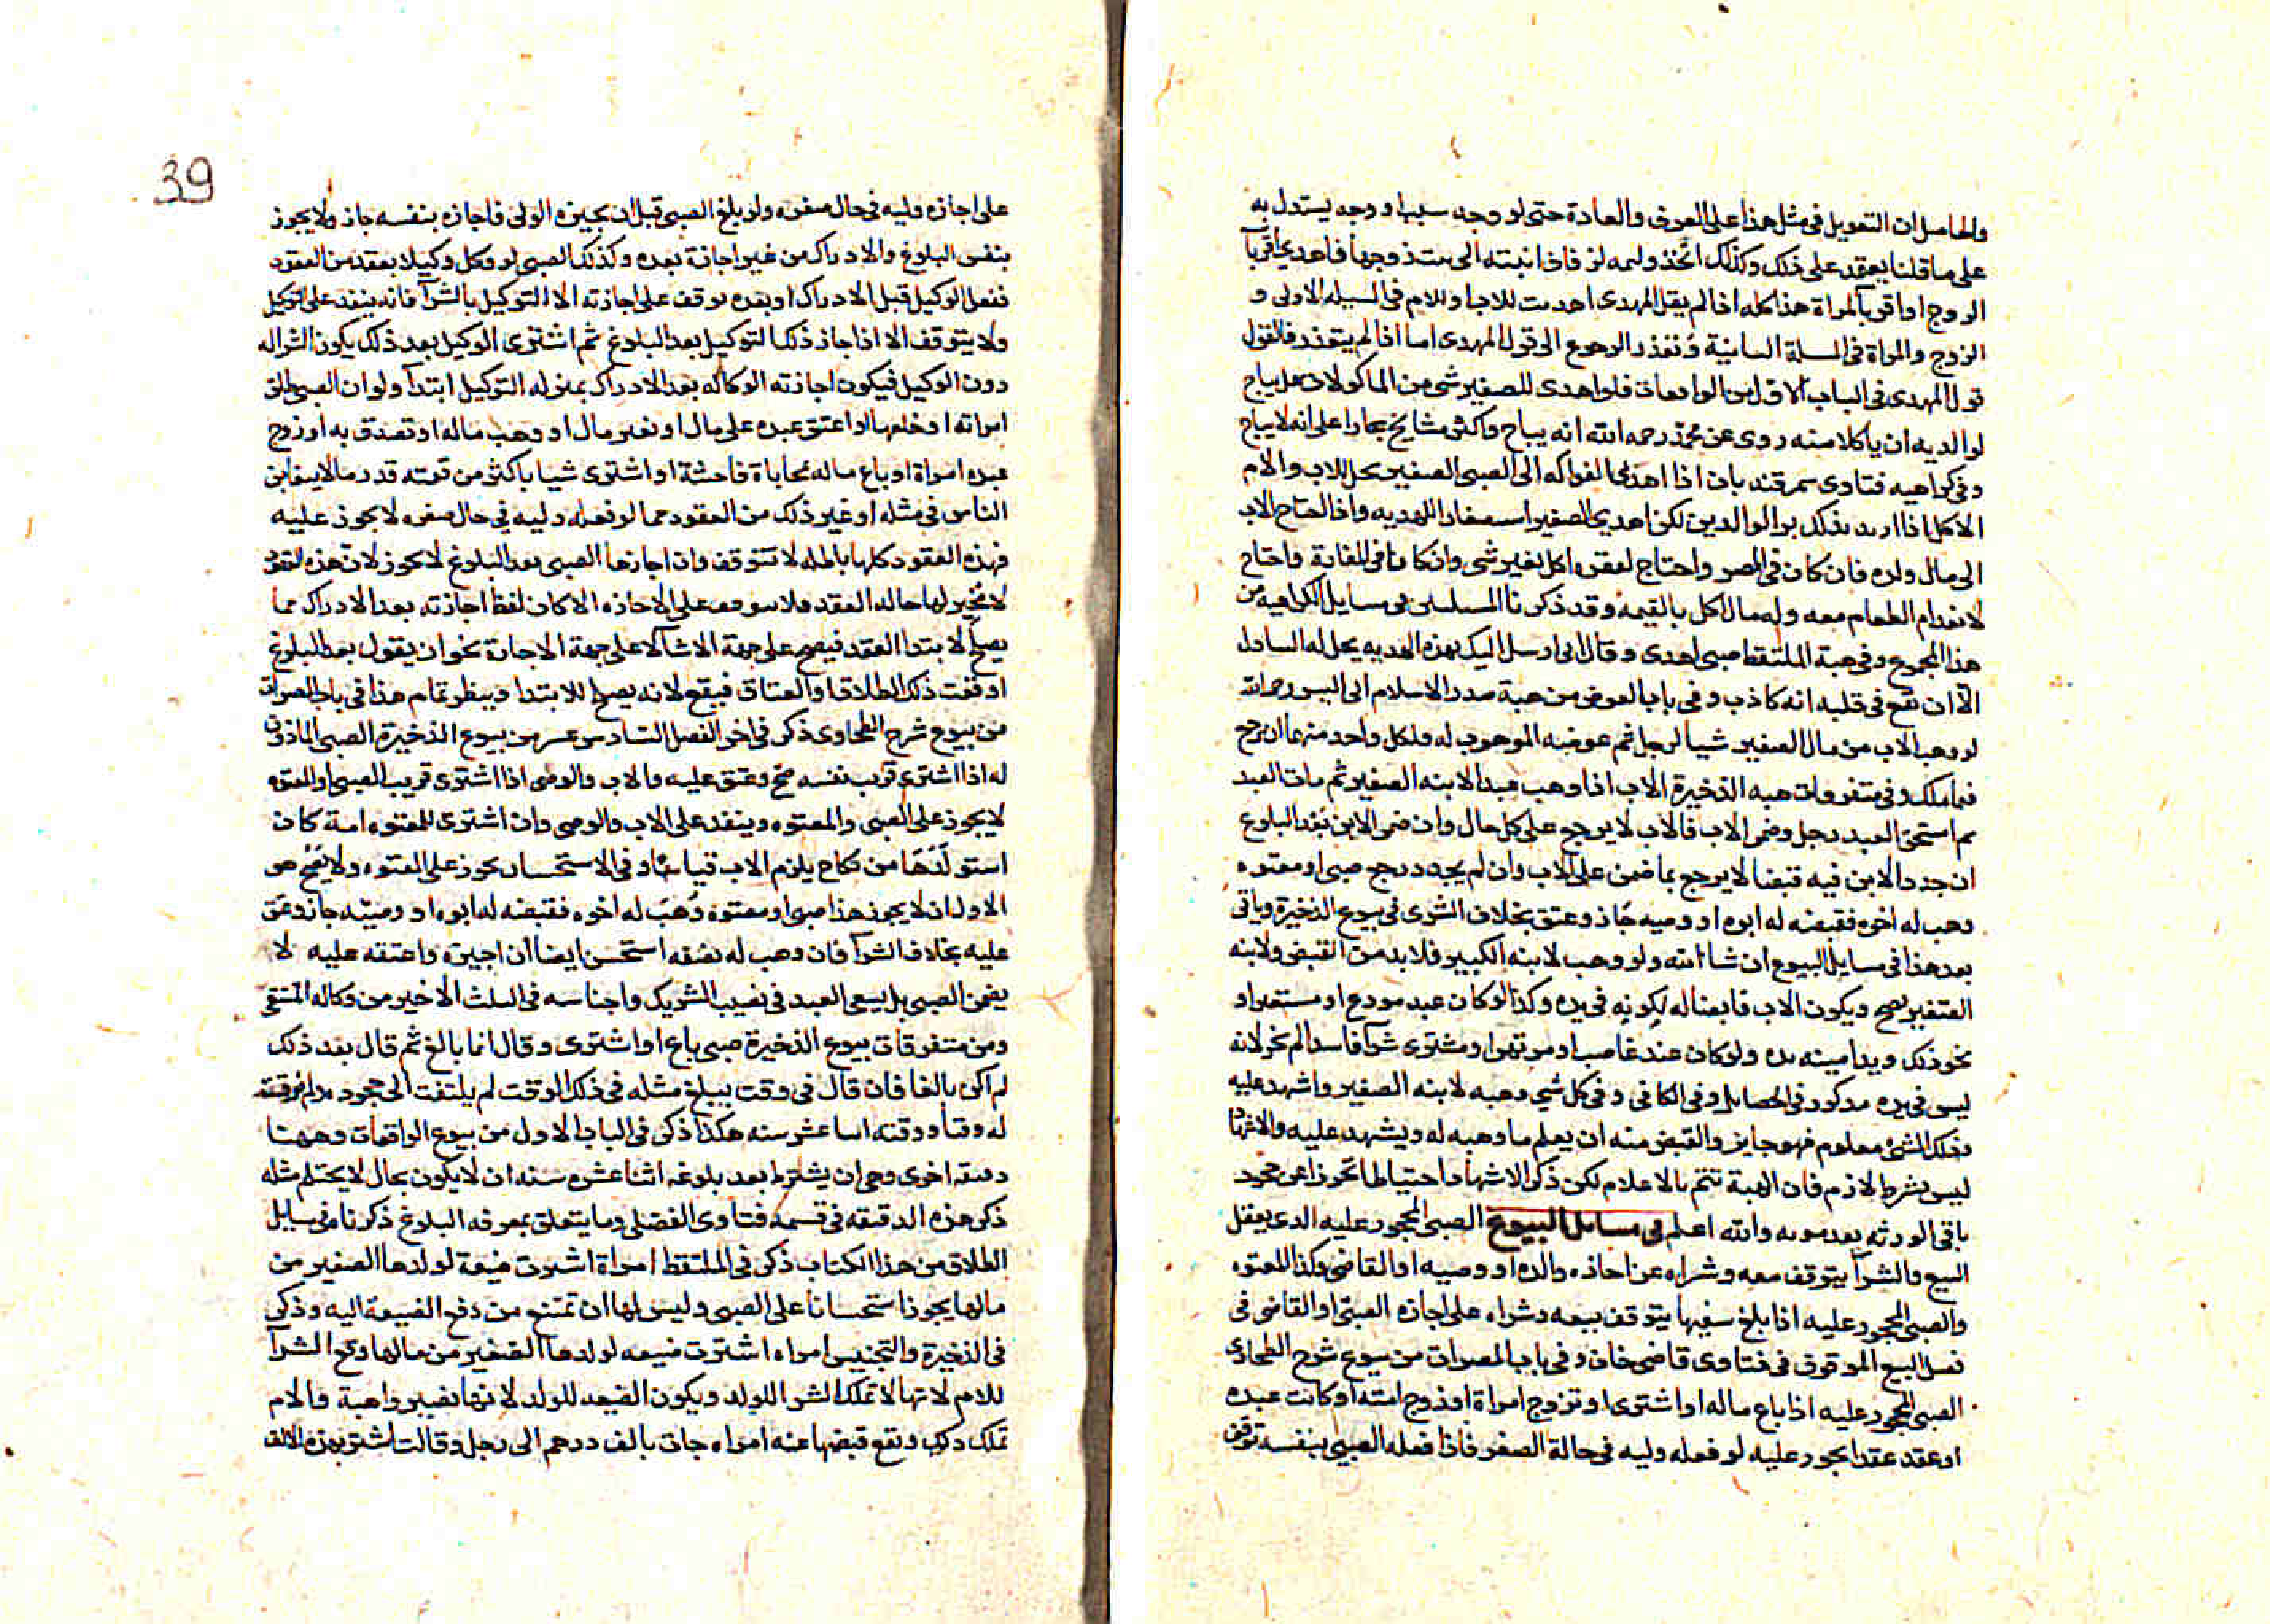 والحاصل ان التعويل في مثل هذا على العرف والعادة حتى لو وجد سبب او وجه يستدل به
على ما قلنا يعتمد على ذلك وكذلك اتخذ وليمه لزفاف ابنته الى بيت زوجها فاهدى اقربآ
الزوج او اقربآ المراة هذا كله اذا لم يقل المهدى اهديت للاب او للام في المسيله الاولى و
الزوج والمراة في المسلة الثانية وتعذر الرجوع الى قول المهدى اما اذا لم يتعذر فالقول
قول المهدى في الباب الاول من الواقعات فلو اهدى للصغير شى من الماكولات هل يباح
لوالديه ان ياكلا منه روى عن محمد رحمه الله انه يباح واكثر مشايخ بخارا على انه لا يباح
وفي كراهيه فتاوى سمرقند بان اذا اهدى الفواكه الى الصبى الصغير يحل للاب والام
الاكل اذا اريد بذلك بر الوالدين لكن اهدى الصغير استصغارا للهديه واذا احتاج الاب
الى مال ولده فان كان في المصر واحتاج لفقره اكل بغير شى وان كانا في المفازة واحتاج
لانعدام الطعام معه وله مال اكل بالقيمه وقد ذكرنا المسيلتين في مسايل الكراهيه من
هذا المجموع وفي هبة الملتقط صبى اهدى وقال ابى ارسل اليك بهذه الهديه يحل له التناول
الا ان يقع في قلبه انه كاذب وفي باب العوض من هبة صدر الاسلام ابى اليسر رحمه الله
لو وهب الاب من مال الصغير شيا لرجل ثم عوضه الموهوب له فلكل واحد منهما ان يرجع
فيما ملك وفي متفرقات هبه الذخيرة الاب اذا وهب عبدا لابنه الصغير ثم مات العبد
ثم استحق العبد رجل وضمن الاب فالاب لا يرجع على كل حال وان ضمن الابن بعد البلوغ
ان جدد الابن فيه قبضا لا يرجع بما ضمن على الاب وان لم يجدد رجع صبى او معتوه
وهب له اخوه فقبضه له ابوه او وصيه جاز وعتق بخلاف الشرى في بيوع الذخيرة وياتى
بعد هذا في مسايل البيوع ان شا الله ولو وهب لابنه الكبير فلا بد من القبض ولابنه
الصغير يصح ويكون الاب قابضا له لكونه في يده وكذا لو كان عبد مودع او مستعير او
نحو ذلك ويد امينه يده ولو كان عند غاصب او مرتهن او مشترى شرآ فاسدا لم يجز لانه
ليس في يده مذكور في الحصايل وفي الكافي وفي كل شي وهبه لابنه الصغير واشهد عليه
وذلك الشئ معلوم فهو جايز والقبض منه ان يعلم ما وهبه له ويشهد عليه والاشهاد
ليس بشرط لازم فان الهبة تتم بالاعلام لكن ذكر الاشهاد احتياطا تحرزا عن جحود
باقي الورثه بعد موته والله اعلم في مسايل البيوع الصبى المحجور عليه الذى يعقل
البيع والشرآ يتوقف بيعه وشراه عن اجازه والده او وصيه او القاضى وكذا المعتوه
والصبى المحجور عليه اذا بلغ سفيها يتوقف بيعه وشراه على اجازه الصبى او القاضى في
فصل البيع الموقوف في فتاوى قاضى خان وفي باب المصرات من بيوع شرح الطحاوى
الصبى المحجور عليه اذا باع ماله او اشترى او تزوج امراة او زوج امته او كاتب عبده
او عقد عقدا يجوز عليه لو فعله وليه في حالة الصغر فاذا فعله الصبى بنفسه توقف
39
على اجازه وليه في حال صغره ولو بلغ الصبى قبل ان يجيزه الولى فاجازه بنفسه جاز ولا يجوز
بنفس البلوغ والادراك من غير اجازة بعده وكذلك الصبى لو وكل وكيلا بعقد من العقود
ففعل الوكيل قبل الادراك او بعده توقف على اجازته الا التوكيل بالشرآ فانه ينفذ على الوكيل
ولا يتوقف الا اذا جاز ذلك التوكيل بعد البلوغ ثم اشترى الوكيل بعد ذلك يكون الشرا له
دون الوكيل فيكون اجازته الوكاله بعد الادراك بمنزله التوكيل ابتدآ ولو ان الصبى طلق
امراته او خلعها او اعتق عبده على مال او بغير مال او وهب ماله او تصدق به او زوج
عبده امراة او باع ماله محاباة فاحشة او اشترى شيا باكثر من قيمته قدر ما لا يتغابن
الناس في مثله او غير ذلك من العقود مما لو فعله وليه في حال صغره لا يجوز عليه
فهذه العقود كلها باطله لا تتوقف وان اجازها الصبى بعد البلوغ لا يجوز لان هذه العقود
لا مجيز لها حاله العقد فلا يتوقف على الاجازه الا كان لفظ اجازته بعد الادراك مما
يصلح لابتدا العقد فيصح على جهة الانشآ لا على جهة الاجازة نحو ان يقول بعد البلوغ
اوقعت ذلك الطلاق او العتاق فيقع لانه يصلح للابتدا وينظر تمام هذا في باب المصرات
من بيوع شرح الطحاوى ذكر في اخر الفصل السادس عشر من بيوع الذخيرة الصبى الماذون
له اذا اشترى قريب نفسه صح وعتق عليه والاب والوصى اذا اشترى قريب الصبى او المعتوه
لا يجوز على الصبى والمعتوه وينفد على الاب والوصى وان اشترى للمعتوه امة كان
استولدها من نكاح يلزم الاب قياسا وفي الاستحسان يجوز على المعتوه ولا يصح هو
الاول ان لا يجوز هذا صبى او معتوه وهب له اخوه فقبضه له ابوه او وصيه جاز وعتق
عليه بخلاف الشرآ فان وهب له نصفه استحسن ايضا ان اجيزه واعتقه عليه لا
يضمن الصبى بل يسعى العبد في نصيب الشريك واجناسه في الثلث الاخير من وكاله المنتقى
ومن متفرقات بيوع الذخيرة صبى باع او اشترى وقال انا بالغ ثم قال بعد ذلك
لم اكن بالغا فان قال في وقت يبلغ مثله في ذلك الوقت لم يلتفت الى جحوده
له وقتا ووقته اثنا عشر سنه هكذا ذكر في الباب الاول من بيوع الواقعات وههنا
دقيقه اخرى وهى ان يشترط بعد بلوغه اثنا عشره سنه ان لا يكون بحال لا يحتلم مثله
ذكر هذه الدقيقه في قسمه فتاوى الفضلى وما يتعلق بمعرفه البلوغ ذكرنا في مسايل
الطلاق من هذا الكتاب ذكر في الملتقط امراة اشترت ضيعة لولدها الصغير من
مالها يجوز استحسانا على الصبى وليس لها ان تمتنع من دفع الضيعة اليه وذكر
في الذخيرة والتجنيس امراه اشترت ضيعه لولدها الصغير من مالها وقع الشرآ
للام لانها لا تملك الشرا للولد ويكون الضيعه للولد لانها تصير واهبة والام
تملك ذلك وتقع قبضها عنه امراه جات بالف درهم الى رجل وقالت اشتر بهذه الالف